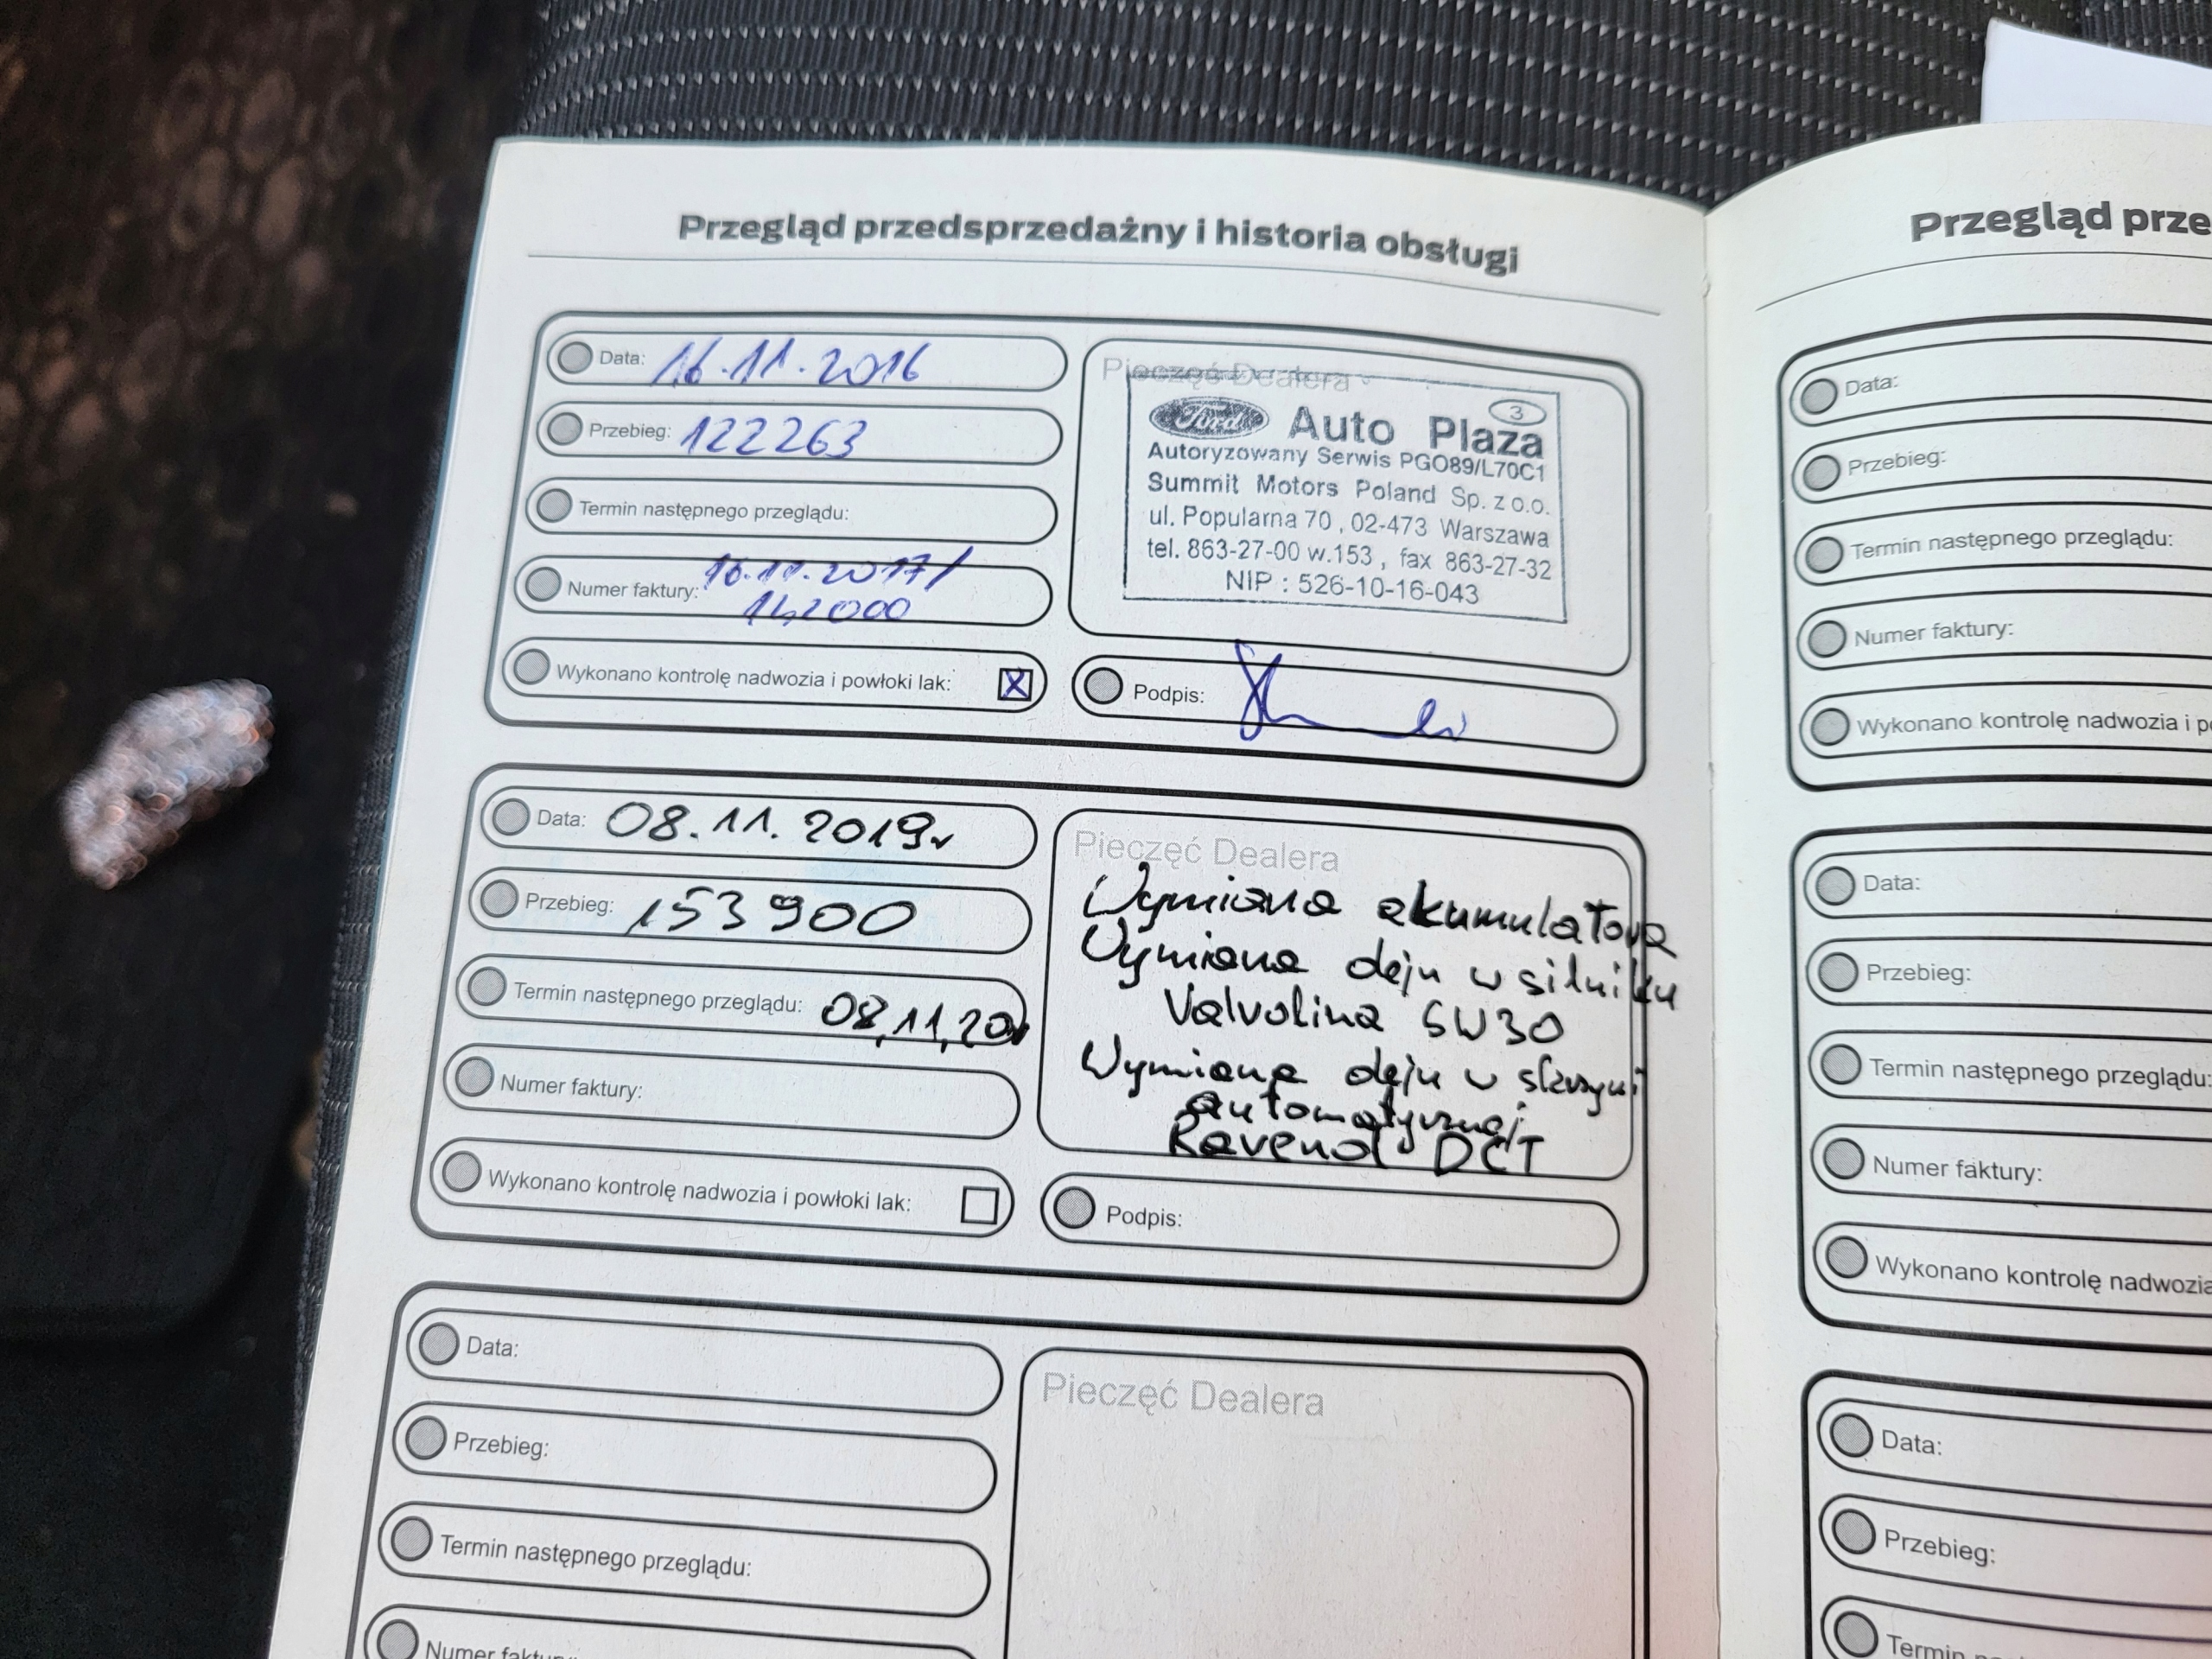 Przegląd przedsprzedażny i historia obsługi
Data: 16.11.2016
Przebieg: 122263
Termin następnego przeglądu:
Numer faktury: 16.11.2017/
142000
Wykonano kontrolę nadwozia i powłoki lak: X
Pieczęć Dealera
Ford Auto Plaza 3
Autoryzowany Serwis PGO89/L70C1
Summit Motors Poland Sp. z o.o.
ul. Popularna 70, 02-473 Warszawa
tel. 863-27-00 w.153, fax 863-27-32
NIP : 526-10-16-043
Podpis:
Data: 08.11.2019r
Przebieg: 153900
Termin następnego przeglądu: 08,11,20
Numer faktury:
Wykonano kontrolę nadwozia i powłoki lak:
Pieczęć Dealera
Wymiana akumulatora
Wymiana oleju w silniku
Valvolina 5W30
Wymiana oleju w skrzyni
automatycznej
Ravenol DCT
Podpis:
Data:
Przebieg:
Termin następnego przeglądu:
Numer
Pieczęć Dealera
Przegląd prze
Data:
Przebieg:
Termin następnego przeglądu:
Numer faktury:
Wykonano kontrolę nadwozia i p
Data:
Przebieg:
Termin następnego przeglądu:
Numer faktury:
Wykonano kontrolę nadwozia
Data:
Przebieg:
Termin